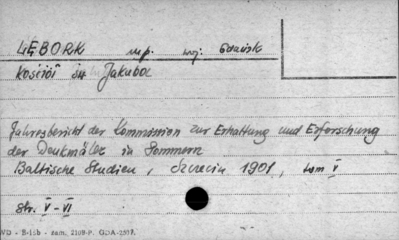 LĘBORK m.p. woj. Gdańsk
Kościół św Jakuba
Jahresbericht der Kommission zur Erhaltung und Erforschung
der Denkmäler in Pommern
Baltische Studien, Szczecin 1901, tom V
str. V-VI